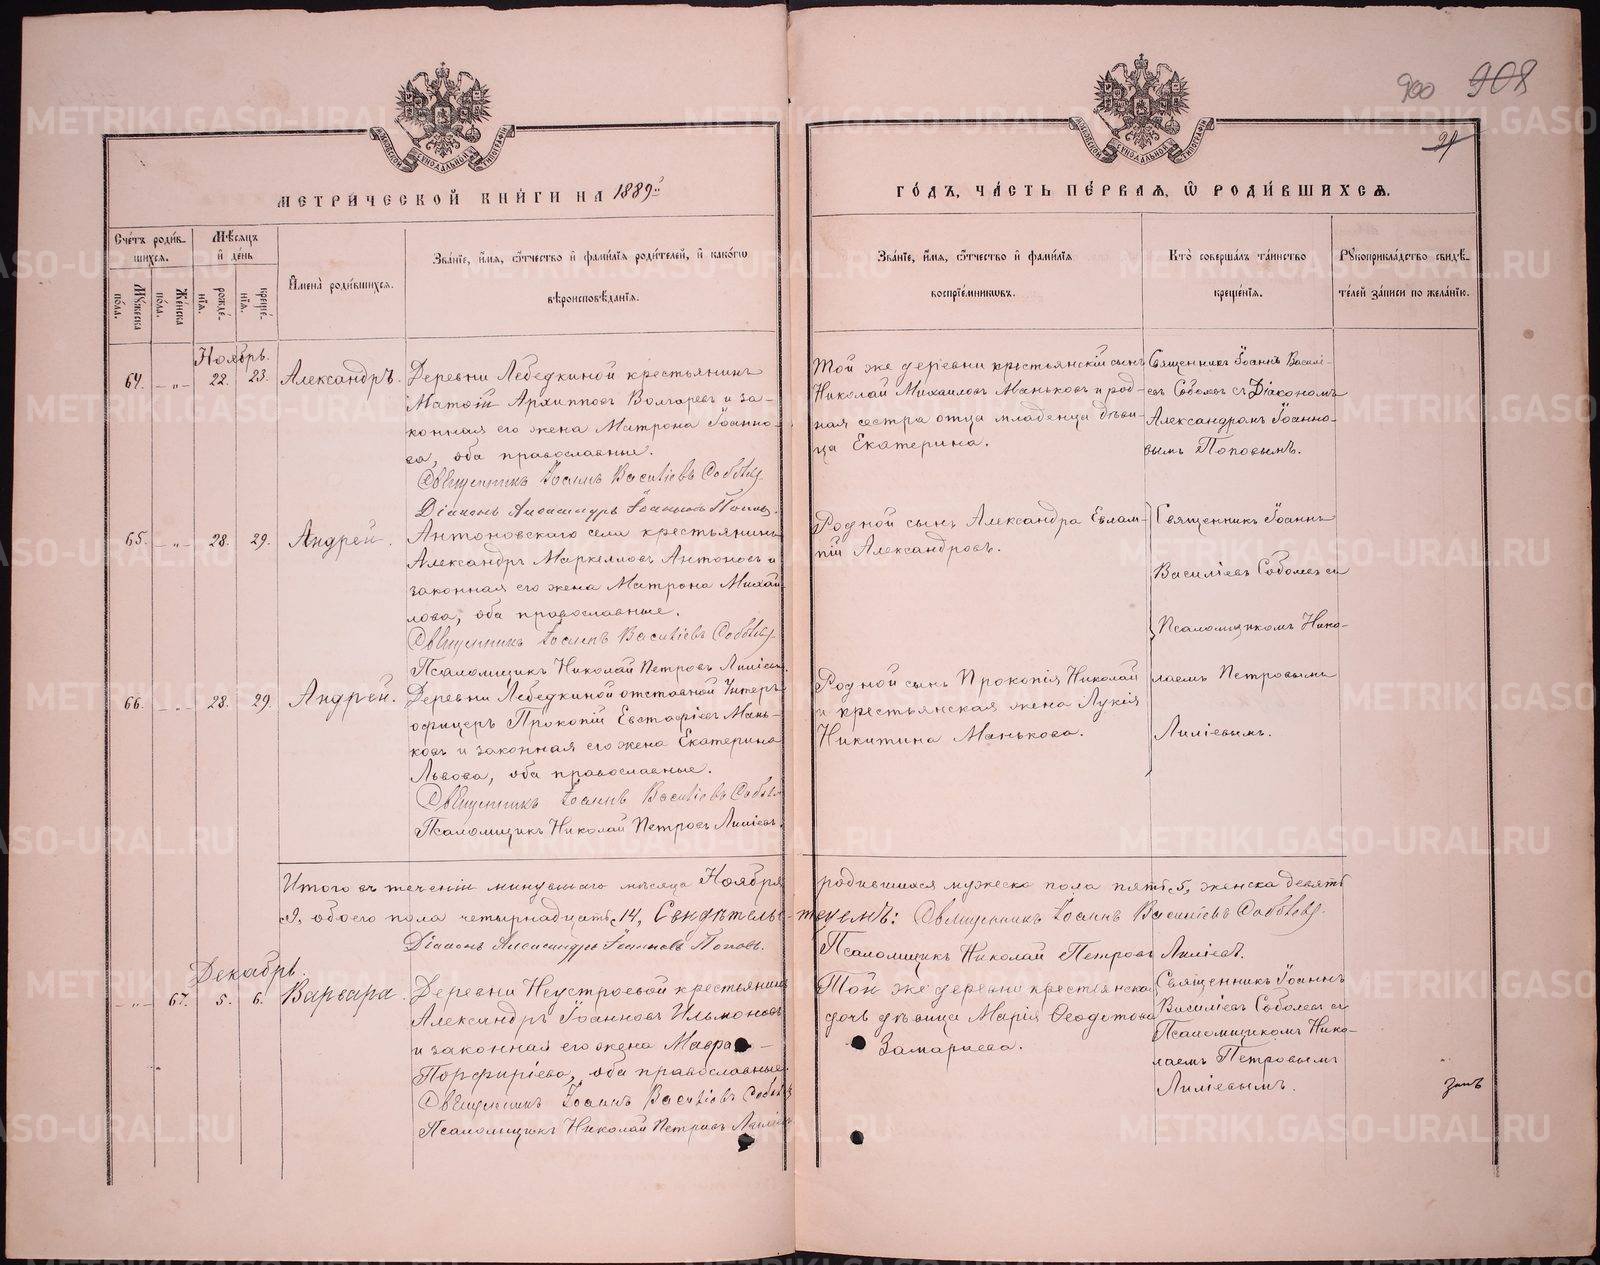 900 908
21
МОСКОВСКОЙ СѴНОДАЛЬНОЙ ТИПОГРАФІИ
МОСКОВСКОЙ СѴНОДАЛЬНОЙ ТИПОГРАФІИ
МЕТРИ́ЧЕСКОЙ КНИ́ГИ НА 1889й
ГО́ДЪ, ЧА́СТЬ ПЕ́РВАЯ, Ѡ РОДИ́ВШИХСЯ.
Сче́тъ роди́в-
шихся.
Мѣ́сяцъ
и҆ де́нь
Мꙋ́жеска
по́ла.
Же́нска
по́ла.
рожде́-
нїя.
креще́-
нїя.
И҆мена̀ роди́вшихся.
Зва́нїе, и҆́мя, ѻ҆́тчество и҆ фами́лїя роди́телей, и҆ како́гѡ
вѣроисповѣ́данїя.
Зва́нїе, и҆́мя, ѻ҆́тчество и҆ фами́лїя
воспрїе́мниковъ.
Кто̀ соверша́лъ та́инство
креще́нїя.
Рꙋкоприкла́дство свидѣ́-
телей за́писи по жела́нїю.
Ноябрь.
64. — „ — 22. 23. Александръ.
Деревни Лебедкиной крестьянинъ
Матѳій Архипповъ Волгаревъ и за-
конная его жена Матрона Іоанно-
ва, оба православные.
Священникъ Іоаннъ Василіевъ Соболевъ
Діаконъ Александръ Іоанновъ Поповъ.
Той же деревни крестьянскій сынъ
Николай Михаиловъ Маньковъ и род-
ная сестра отца младенца дѣви-
ца Екатерина.
Священникъ Іоаннъ Василі-
евъ Соболевъ съ Діакономъ
Александромъ Іоанно-
вымъ Поповымъ.
65. — „ — 28. 29. Андрей.
Антоновскаго села крестьянинъ
Александръ Маркелловъ Антоновъ и
законная его жена Матрона Михаи-
лова, оба православные.
Священникъ Іоаннъ Василіевъ Соболевъ
Псаломщикъ Николай Петровъ Лиліевъ.
Родной сынъ Александра Евлам-
пій Александровъ.
Священникъ Іоаннъ
Василіевъ Соболевъ съ
Псаломщикомъ Нико-
66. — „ — 28. 29. Андрей.
Деревни Лебедкиной отставной Унтеръ
офицеръ Прокопій Евстафіевъ Мань-
ковъ и законная его жена Екатерина
Львова, оба православные.
Священникъ Іоаннъ Василіевъ Соболевъ
Псаломщикъ Николай Петровъ Лиліевъ.
Родной сынъ Прокопія Николай
и крестьянская жена Лукія
Никитина Манькова.
лаемъ Петровымъ
Лиліевымъ.
Итого въ теченіи минувшаго мѣсяца Ноября родившихся мужеска пола пять, 5, женска девять
9, обоего пола четырнадцать, 14, Свидѣтельствуемъ: Священникъ Іоаннъ Василіевъ Соболевъ.
Діаконъ Александръ Іоанновъ Поповъ. Псаломщикъ Николай Петровъ Лиліевъ.
Декабрь.
— „ — 67. 5. 6. Варвара.
Деревни Неустроевой крестьянинъ
Александръ Іоанновъ Ильмоновъ
и законная его жена Мавра —
Порфиріева, оба православные.
Священникъ Іоаннъ Василіевъ Соболевъ
Псаломщикъ Николай Петровъ Лиліевъ
Той же деревни крестьянская
дочь дѣвица Марія Ѳеодотова
Замараева.
Священникъ Іоаннъ
Василіевъ Соболевъ съ
Псаломщикомъ Нико-
лаемъ Петровымъ
Лиліевымъ.
METRIKI.GASO-URAL.RU